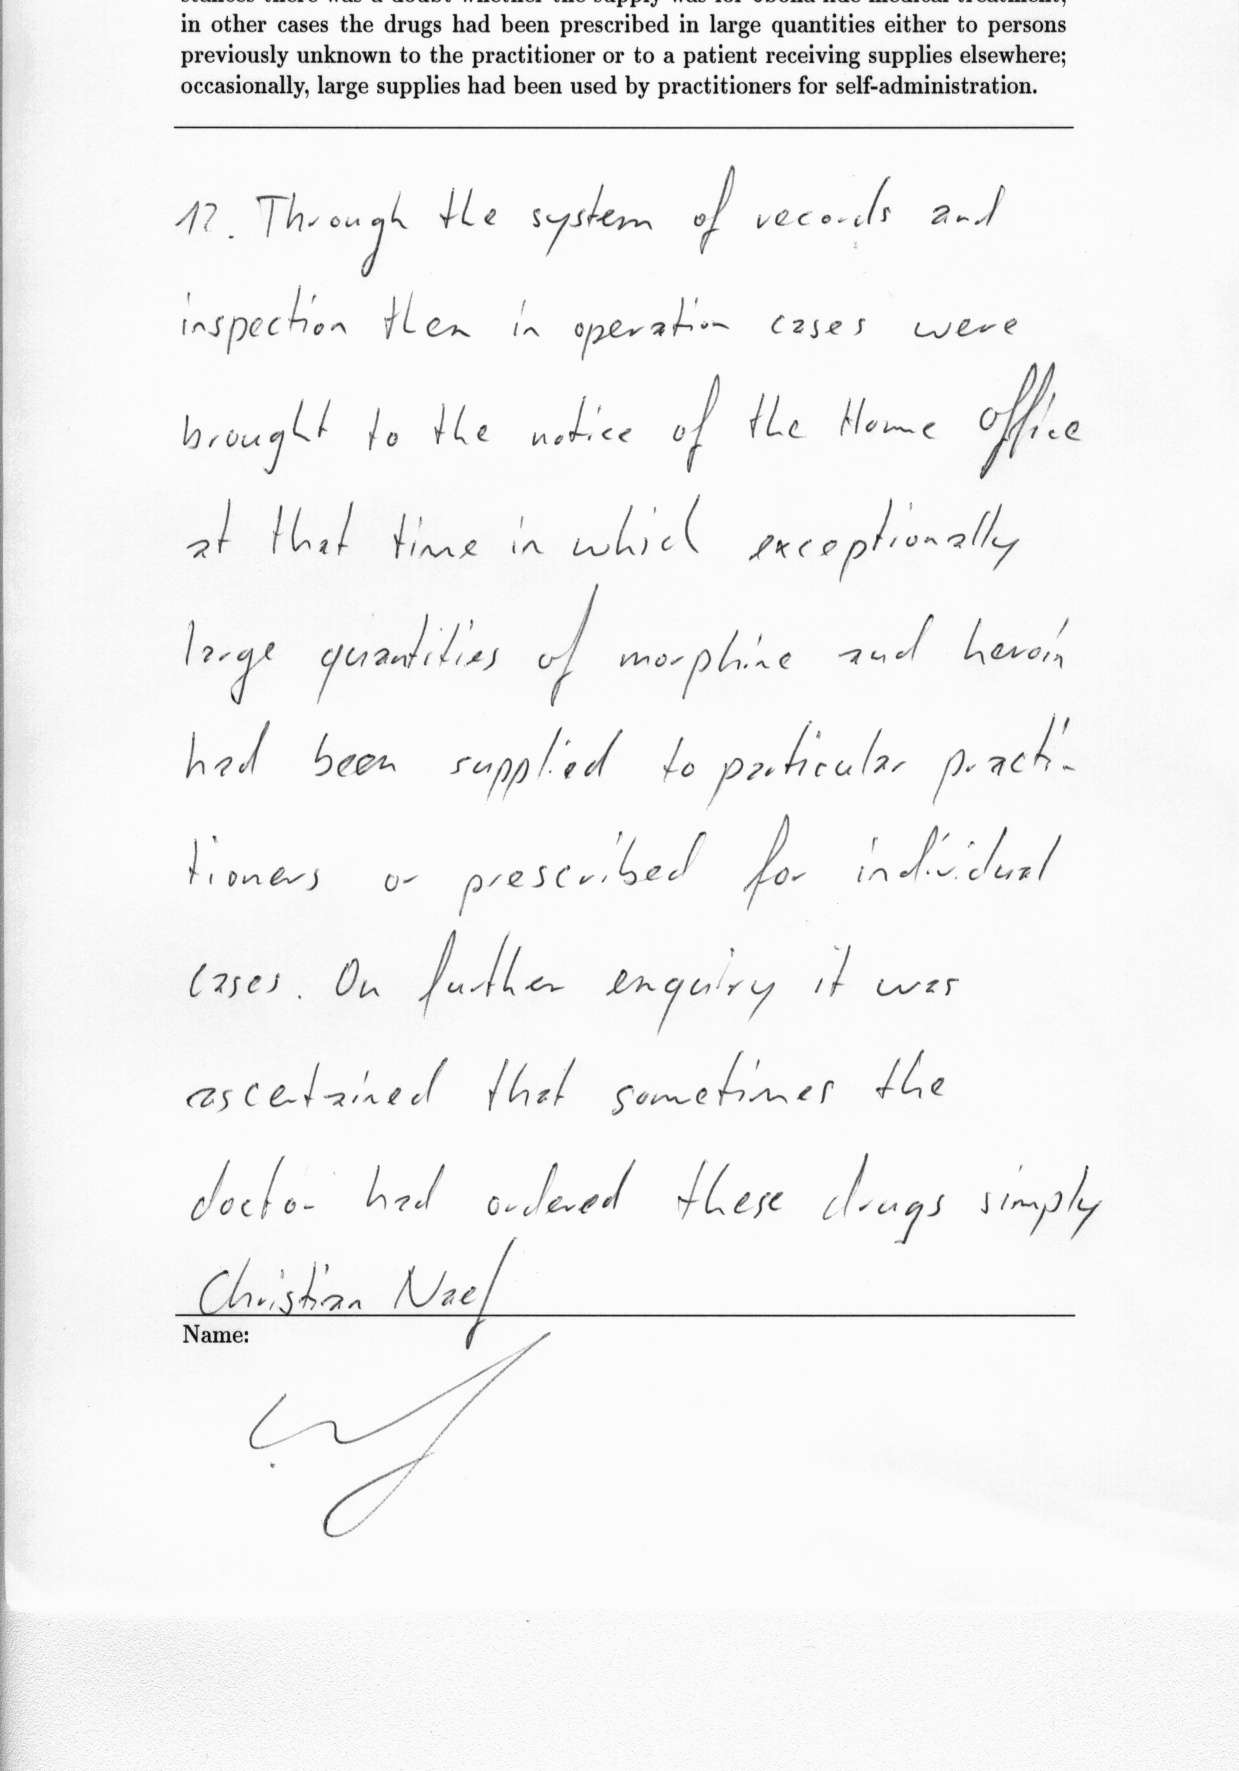 stances there was a doubt whether the supply was for bona fide medical treatment;
in other cases the drugs had been prescribed in large quantities either to persons
previously unknown to the practitioner or to a patient receiving supplies elsewhere;
occasionally, large supplies had been used by practitioners for self-administration.
12. Through the system of records and
inspection then in operation cases were
brought to the notice of the Home Office
at that time in which exceptionally
large quantities of morphine and heroin
had been supplied to particular practi-
tioners or prescribed for individual
cases. On further enquiry it was
ascertained that sometimes the
doctor had ordered these drugs simply
Christian Naef
Name: